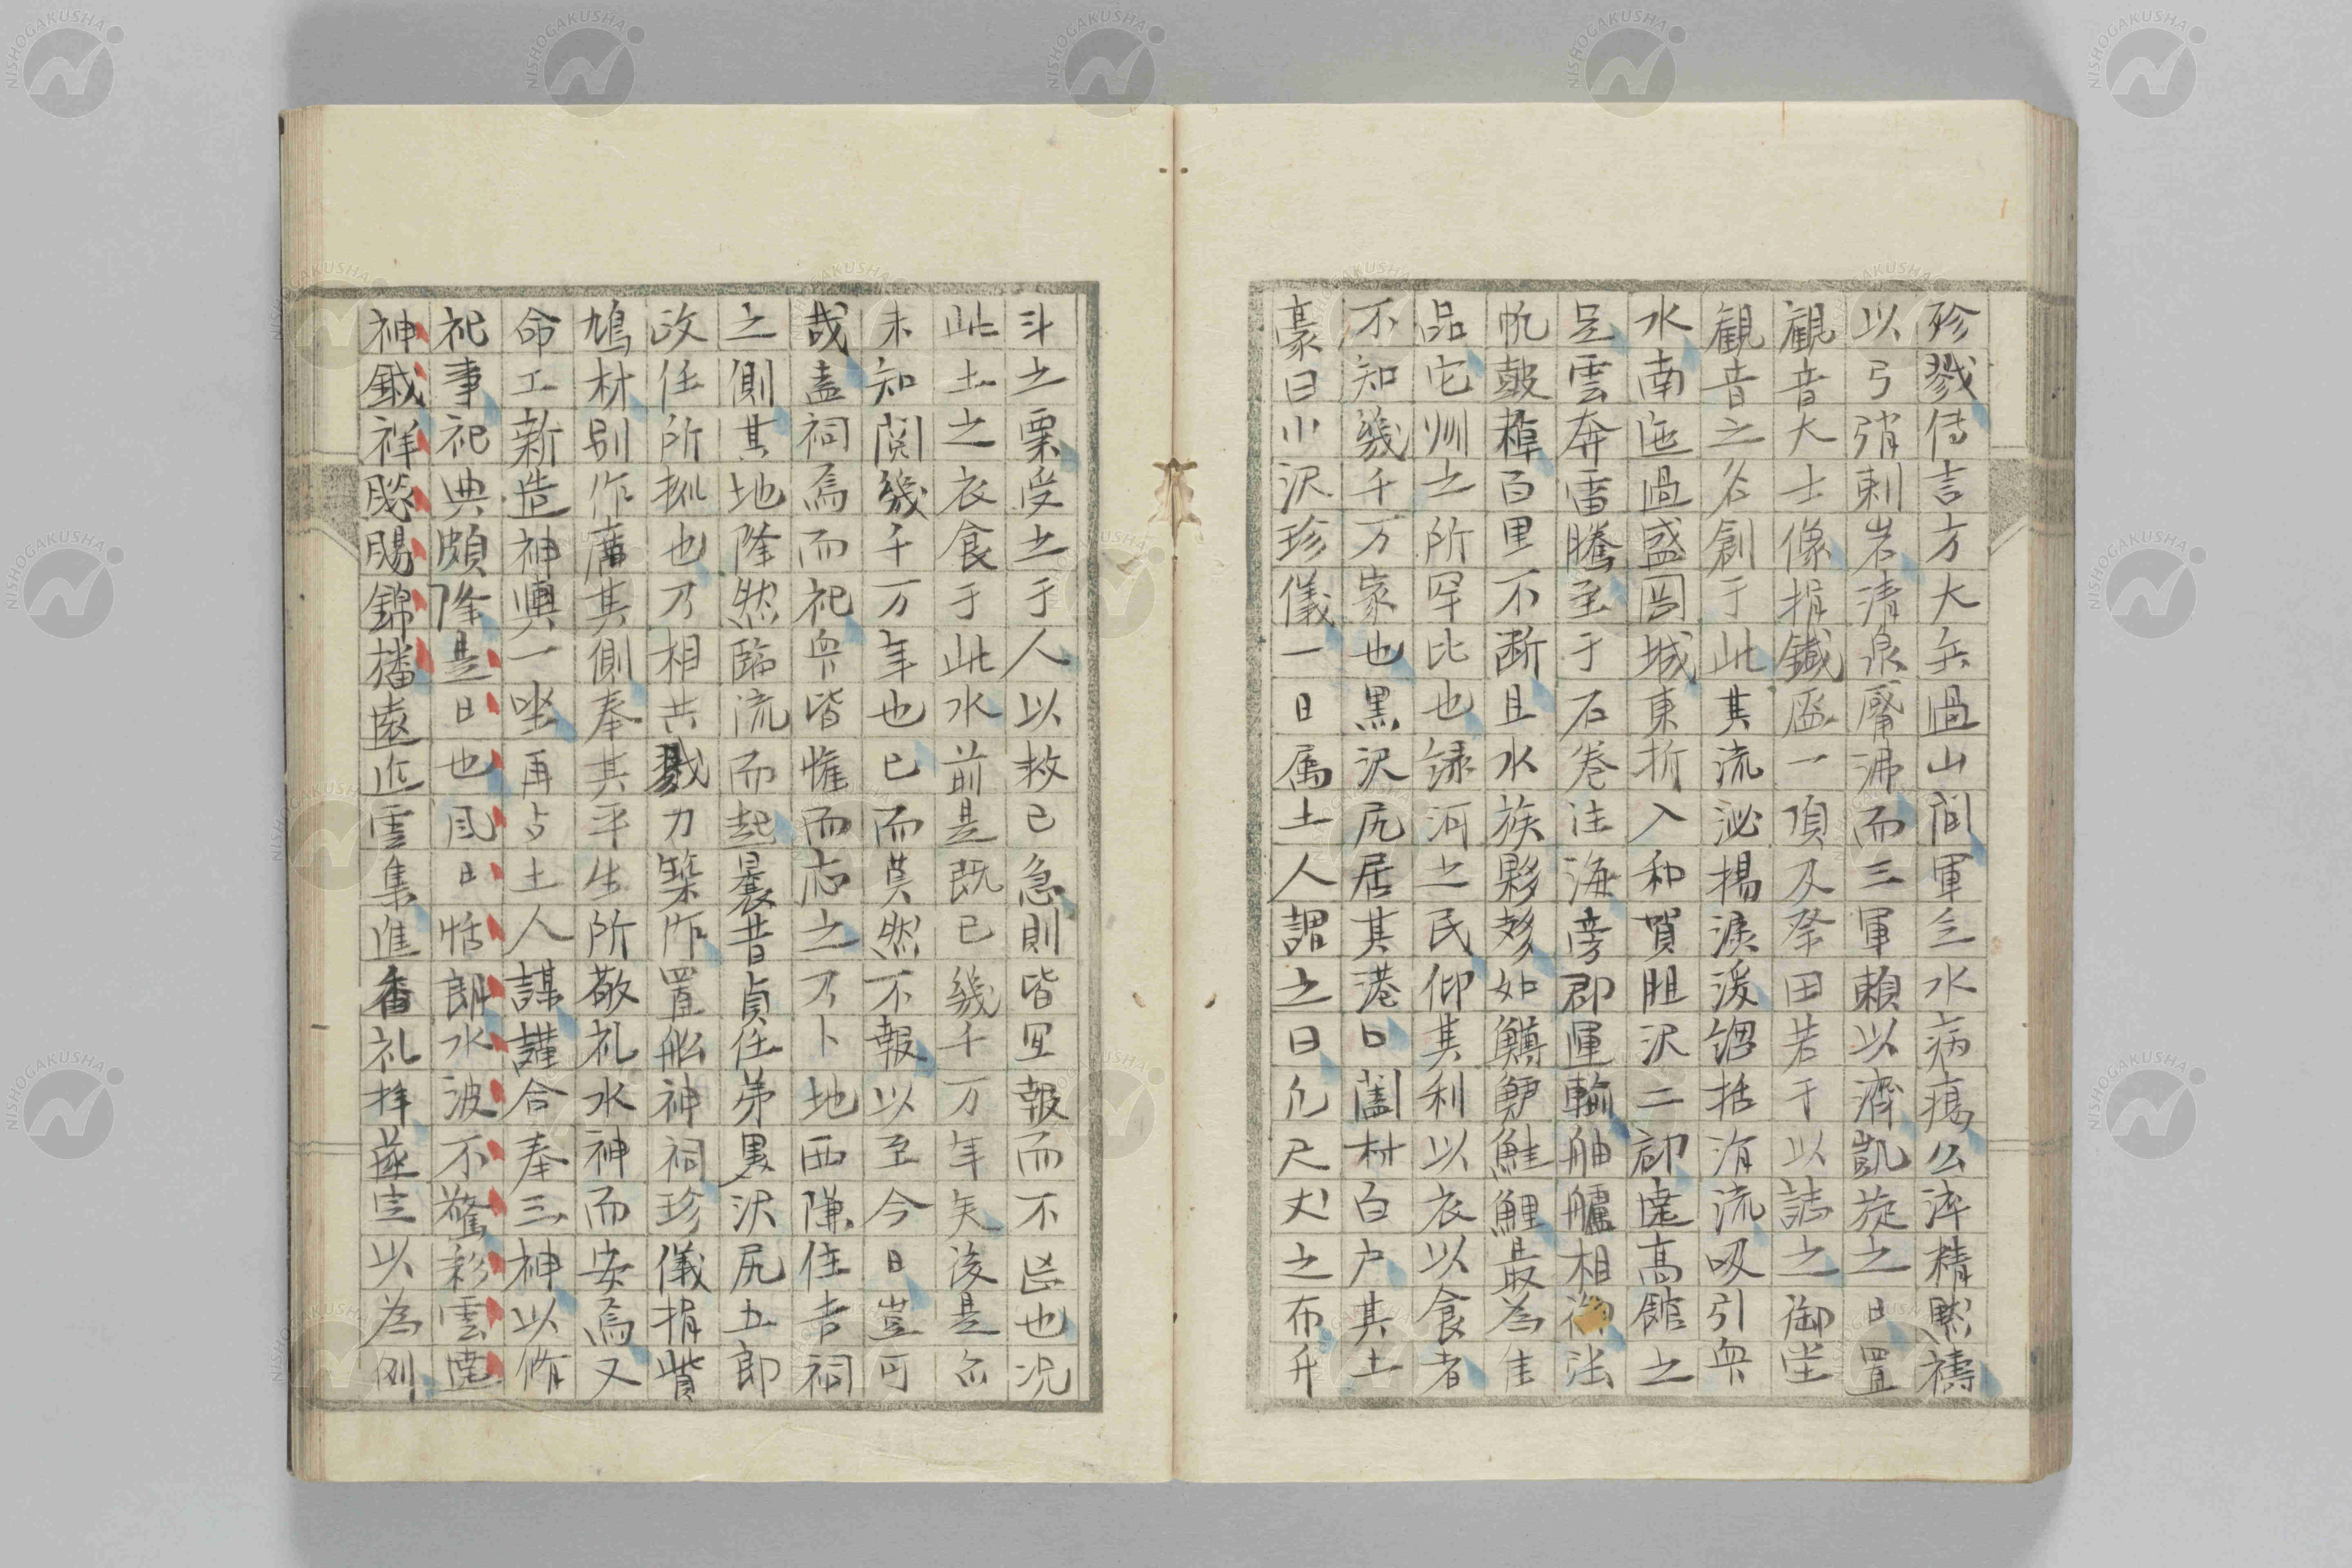 殄戮傳言方大兵過山間軍乏水病渴公淬精默禱
以弓弰刺岩清泉觱沸而三軍賴以濟凱旋之日置
観音大士像捐鐵盔一頂及祭田若干以誌之御堂
観音之名創于此其流泌楊淚湲謵括涓流吸引衆
水南迤過盛岡城東折入和賀胆沢二郡達高館之
足雲奔雷騰至于石巻注海旁郡運輸舳艫相御法
帆皷棹百里不断且水族夥夥如鱒鱸鮭鯉最為佳
品它州之所罕比也緑河之民仰其利以衣以食者
不知幾千万家也黒沢尻居其港口闔村百戸其土
豪曰小沢珍儀一日属土人謂之曰凡尺丈之布升
斗之粟受之于人以救已急則皆宜報而不忘也况
此土之衣食于此水前是既已幾千万年矣後是亦
未知閲幾千万年也已而莫然不報以至今日豈可
哉盖祠焉而祀衆皆慛而忘之乃卜地西隣住吉祠
之側其地隆然臨流而起曩昔貞任弟男沢尻五郎
政任所拠也乃相共戮力築作置船神祠珍儀捐貲
鳩材別作庿其側奉其平生所敬礼水神而安焉又
命工新造神輿一坐再占土人謀謹合奉三神以脩
祀事祀典頗隆是日也風日恬朗水波不驚彩雲達
神鉞祥飈賜錦旛遠近雲集進香礼拝遂定以為例